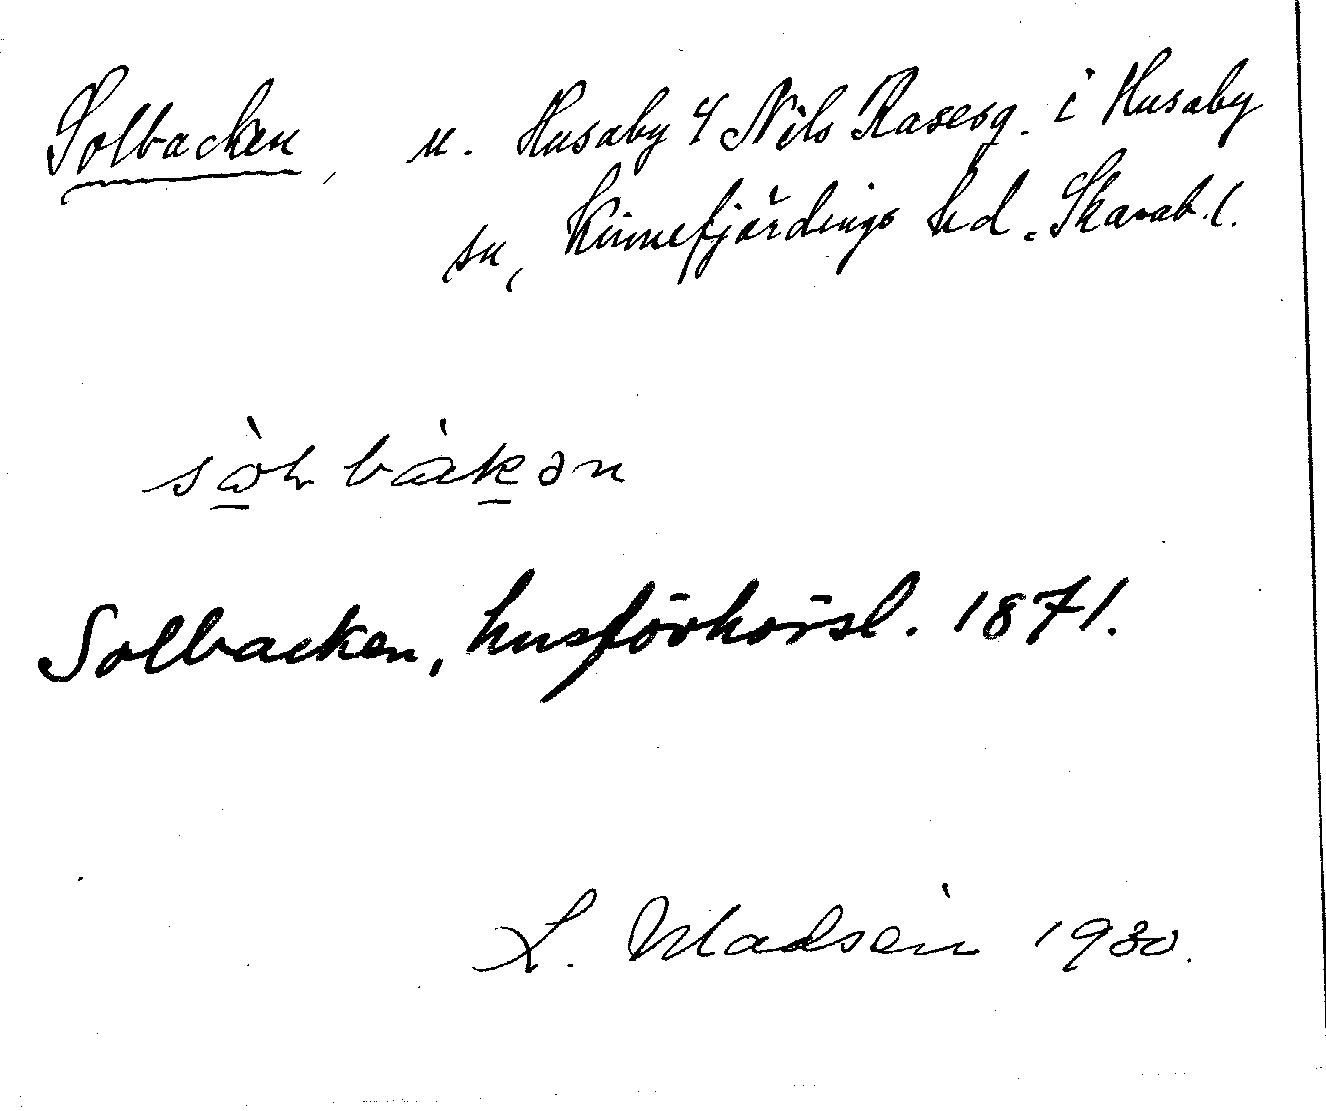 Solbacken, u. Husaby 4 Nils Rasesg. i Husaby
sn, Kinnefjärdings hd. Skarab. l.
sòlbàkən
Solbacken, husförhörsl. 1871.
L. Madsén 1930.